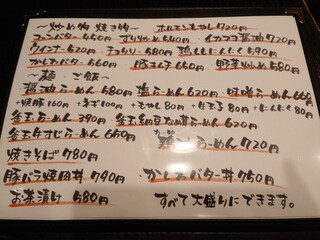 ～炒め物 焼き物～ ホルモンもやし 720円
コーンバター 450円 すり炒め 540円 イカフヨ醤油 720円
ウインナー 620円 チョリソー 580円 鶏もにんにく 590円
かしわバター 560円 豚ユ子 550円 野菜炒め 580円
～麺・ご飯～
醤油らーめん 580円 塩らーめん 620円 味噌らーめん 660円
+焼豚160円 +ネギ100円 +もやし80円 +生玉子80円 +にんにく80円
釜玉らーめん 390円 釜玉納豆なめ茸らーめん 620円
釜玉牛すじらーめん 650円 らーめん 720円
焼きそば 780円
豚バラ焼肉丼 790円 かしわバター丼 750円
お茶漬け 580円 すべて大盛りにできます。